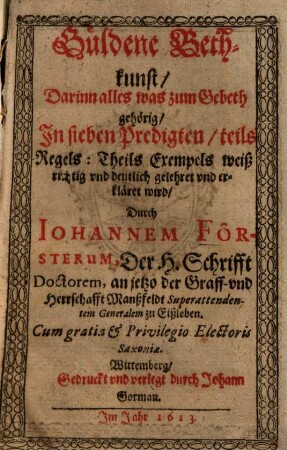 Güldene Beth-
kunst/
Darinn alles was zum Gebeth
gehörig/
In sieben Predigten/ teils
Regels: Theils Exempels weiß
richtig vnd deutlich gelehret vnd er-
kläret wird/
Durch
IOHANNEM FÖR-
STERUM, Der H. Schrifft
Doctorem, an jetzo der Graff- vnd
Herrschafft Manßfeldt Superattenden-
tem Generalem zu Eißleben.
Cum gratia & Privilegio Electoris
Saxoniæ.
Wittemberg/
Gedruckt vnd verlegt durch Johann
Gorman.
Im Jahr 1613.